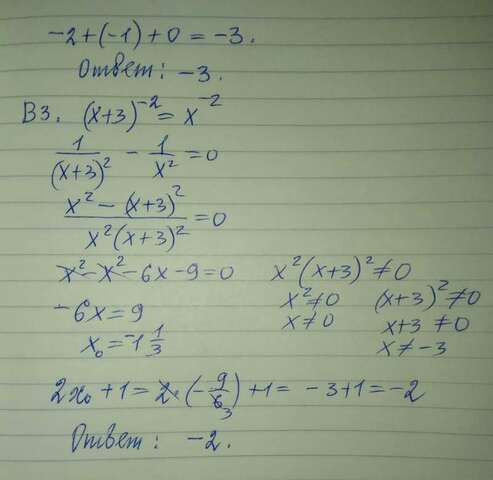 -2+(-1)+0=-3.
Ответ: -3.
В3. (x+3)^{-2}=x^{-2}
\frac{1}{(x+3)^2} - \frac{1}{x^2}=0
\frac{x^2-(x+3)^2}{x^2(x+3)^2}=0
x^2-x^2-6x-9=0 x^2(x+3)^2≠0
-6x=9 x^2≠0 (x+3)^2≠0
x_0=-1\frac{1}{3} x≠0 x+3≠0
x≠-3
2x_0+1=2·(-\frac{9}{6_3})+1=-3+1=-2
Ответ: -2.